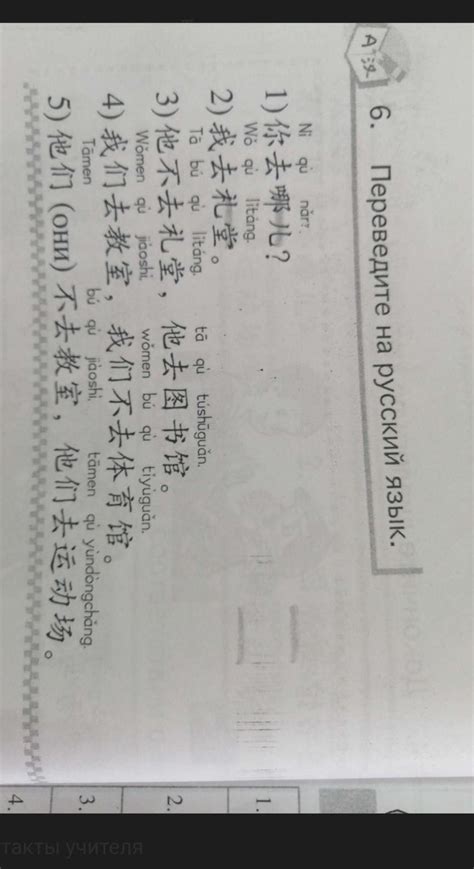 6. Переведите на русский язык.
Nǐ qù nǎrr.
1) 你去哪儿?
Wǒ qù lǐtáng.
2) 我去礼堂。
Tā bú qù lǐtáng. tā qù túshūguǎn.
3) 他不去礼堂，他去图书馆。
Wǒmen qù jiàoshì. wǒmen bú qù tǐyùguǎn.
4) 我们去教室，我们不去体育馆。
Tāmen bú qù jiàoshì. tāmen qù yùndòngchǎng.
5) 他们 (они) 不去教室，他们去运动场。
1.
2.
3.
4.
такты учителя